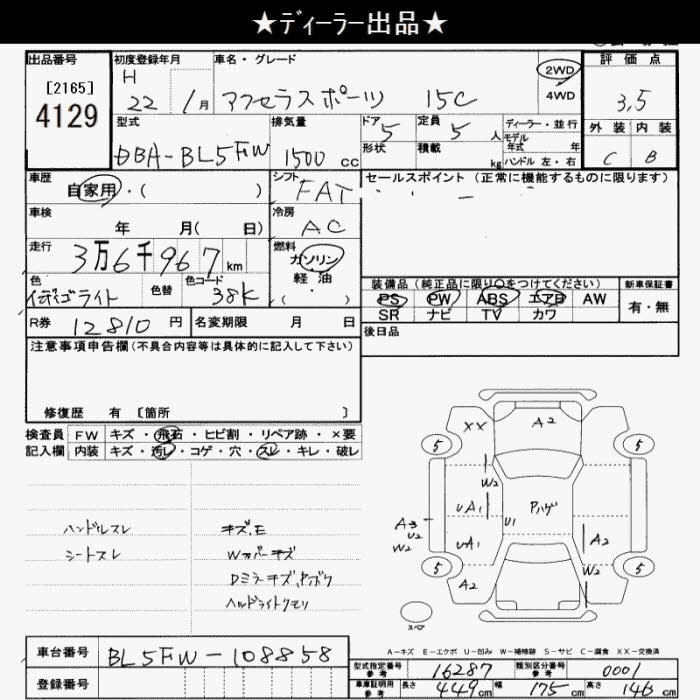 ★ディーラー出品★
出品番号
[2165]
4129
初度登録年月
H
22 年 1月
車名・グレード
アクセラスポーツ 15C
2WD
4WD
評価点
3.5
外装 内装
C B
型式
DBA-BL5FW
排気量
1500 cc
ドア 5
形状
定員 5 人
積載 kg
ディーラー・並行
モデル年式 年
ハンドル 左・右
車歴
自家用・( )
シフト
FAT
セールスポイント (正常に機能するものに限ります)
車検
年 月( 日)
冷房
AC
走行
3万6千967 km
燃料
ガソリン
軽油
( ・ )
色
インディゴライト
色替
色コード
38K
装備品 (純正品に限り○をつけてください)
PS PW ABS エアB AW
SR ナビ TV カワ
新車保証書
有・無
R券 12810 円
名変期限 月 日
後日品
注意事項申告欄(不具合内容等は具体的に記入して下さい)
修復歴 有 [箇所 ]
検査員
記入欄
FW キズ・飛石・ヒビ割・リペア跡・×要
内装 キズ・汚レ・コゲ・穴・スレ・キレ・破レ
ハンドルスレ
シートスレ
キズ、E
Wカバーキズ
Dミラーキズ、
ヘッドライトクモリ
XX
A2
5
5
W2
UA1
U1
Pハゲ
A3
U2
W2
UA1
A2
W2
5
5
A2
スペア
A-キズ E-エクボ U-凹み W-補修跡 S-サビ C-腐食 XX-交換済
車台番号
BL5FW-108858
登録番号
型式指定番号
参考
16287
類別区分番号
参考
0001
車庫証明用
参考
長さ 449cm
幅 175cm
高さ 146cm